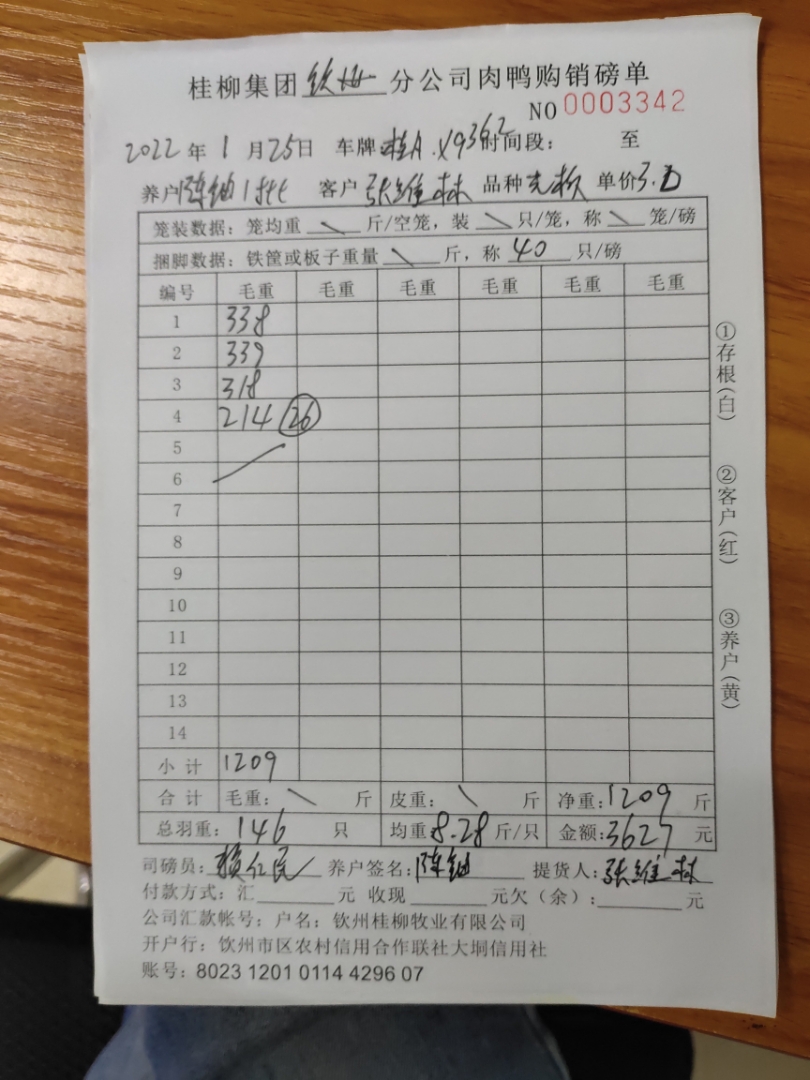 桂柳集团钦州分公司肉鸭购销磅单
NO 0003342
2022年1月25日 车牌桂A.X9362时间段: 至
养户陈铀1批 客户张维林 品种 单价3.0
笼装数据:笼均重\斤/空笼,装\只/笼,称\笼/磅
捆脚数据:铁筐或板子重量\斤,称40只/磅
编号 毛重 毛重 毛重 毛重 毛重 毛重
1 338
2 339
3 318
4 214 26
5
6
7
8
9
10
11
12
13
14
小计 1209
合计 毛重:\斤 皮重:\斤 净重:1209斤
总羽重:146只 均重8.28斤/只 金额:3627元
司磅员:赖红民 养户签名:陈铀 提货人:张维林
付款方式:汇______元 收现______元欠(余):______元
公司汇款帐号;户名:钦州桂柳牧业有限公司
开户行:饮州市区农村信用合作联社大垌信用社
账号:8023 1201 0114 4296 07
①存根(白)
②客户(红)
③养户(黄)